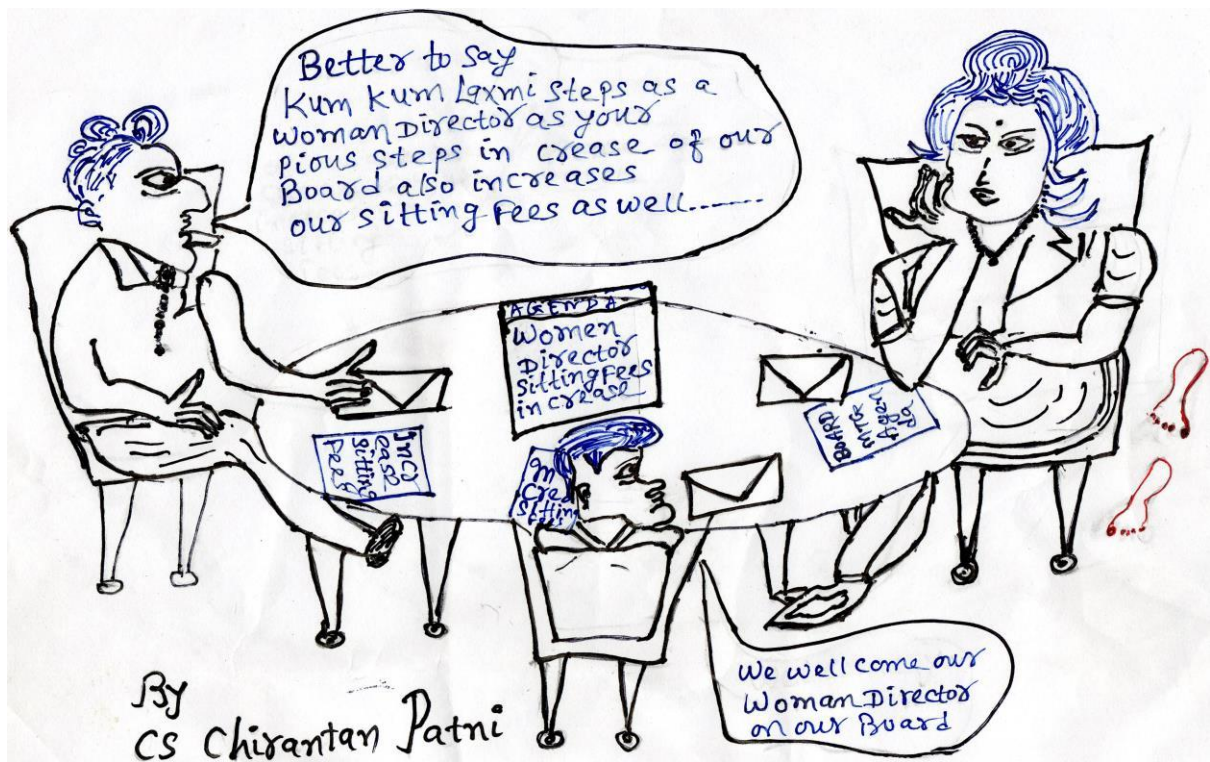 Better to say
Kum Kum Laxmi steps as a
woman Director as your
pious steps in crease of our
Board also increases
our sitting Fees as well.......
AGENDA
Women
Director
sitting Fees
in crease
Incr
ease
sitting
Fees
BOARD
MTG
Agen
da
In
Crea
sitting
Fees
We well come our
Woman Director
on our Board
By
CS Chirantan Patni